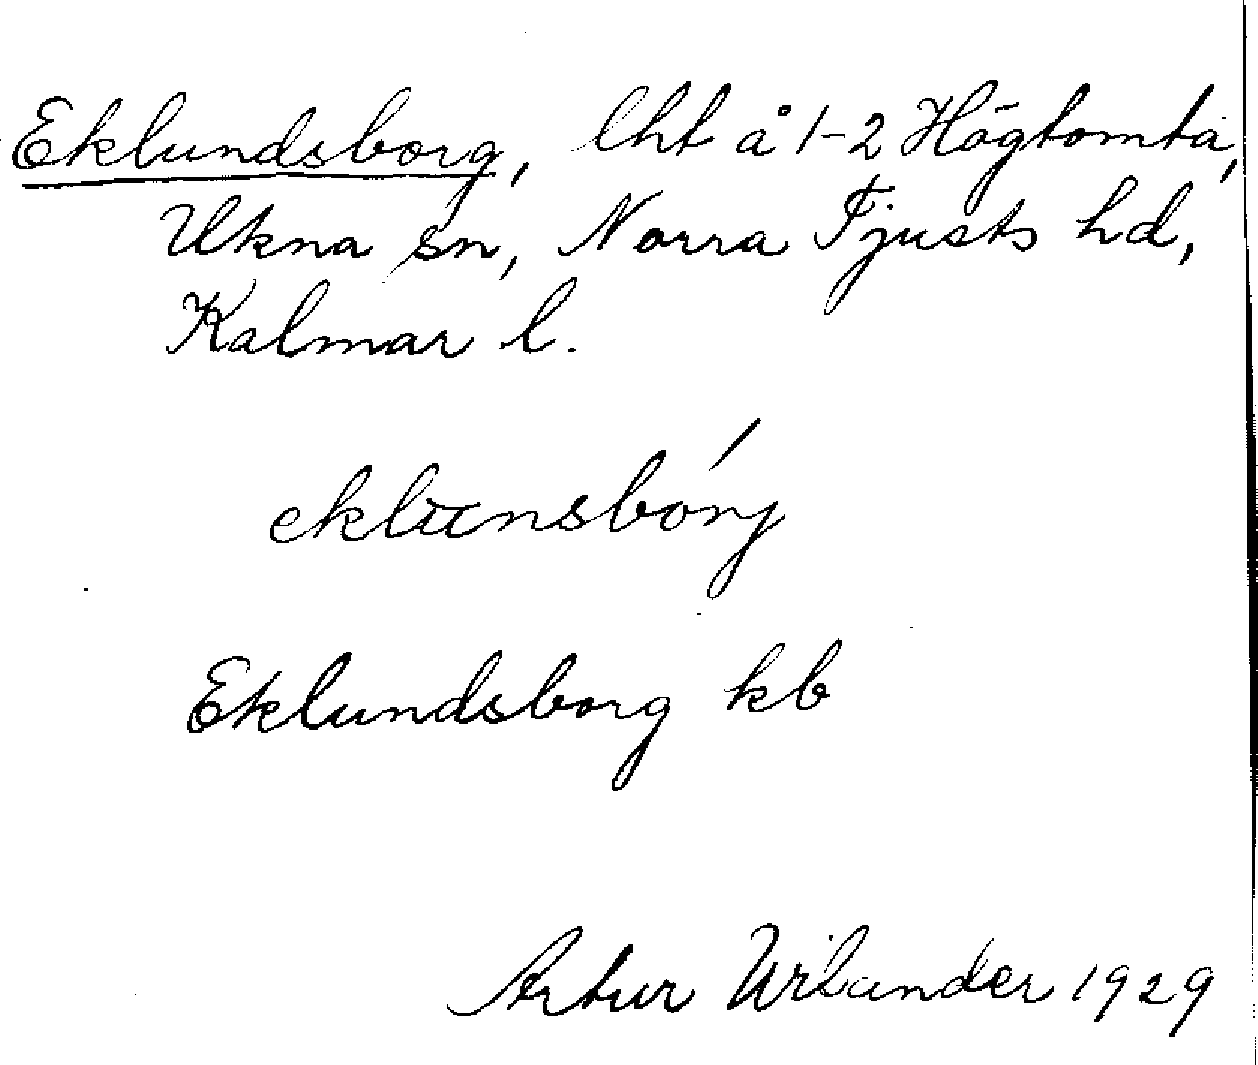 Eklundsborg, lht å 1-2 Högtomta,
Ukna sn, Norra Tjusts hd,
Kalmar l.
eklunsbórj
Eklundsborg kb
Artur Wilander 1929